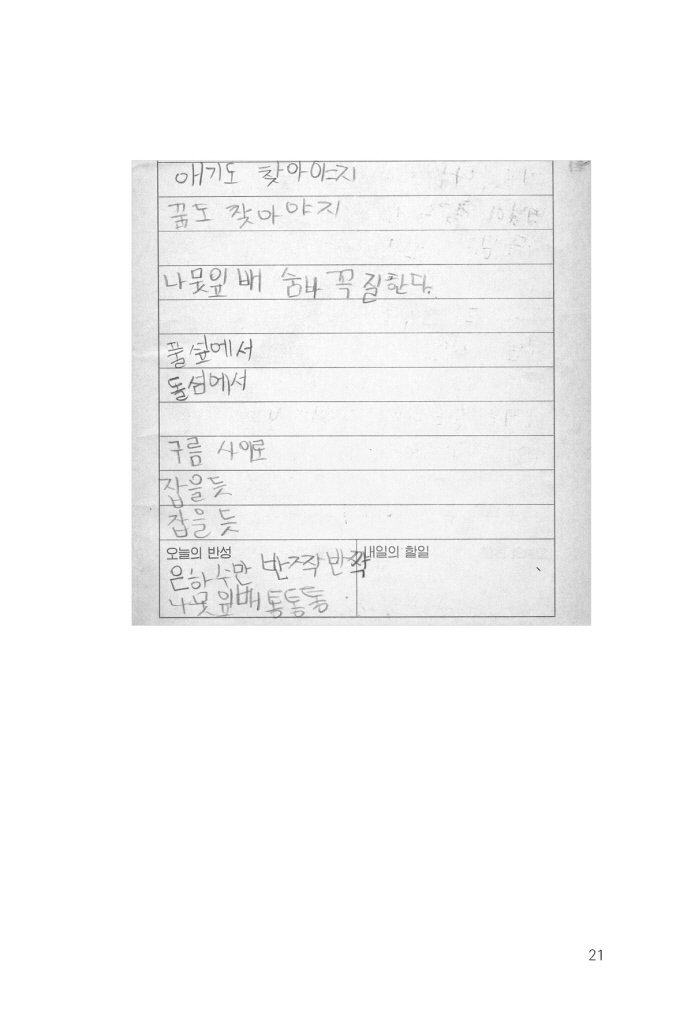 애기도 찾아야지
꿈도 찾아야지
나뭇잎 배 숨바 꼭 질한다.
풀 숲에서
돌섬에서
구름 사이로
잡을듯
잡을듯
오늘의 반성
내일의 할일
은하수만 반짝반짝
나뭇잎배 통통통
21